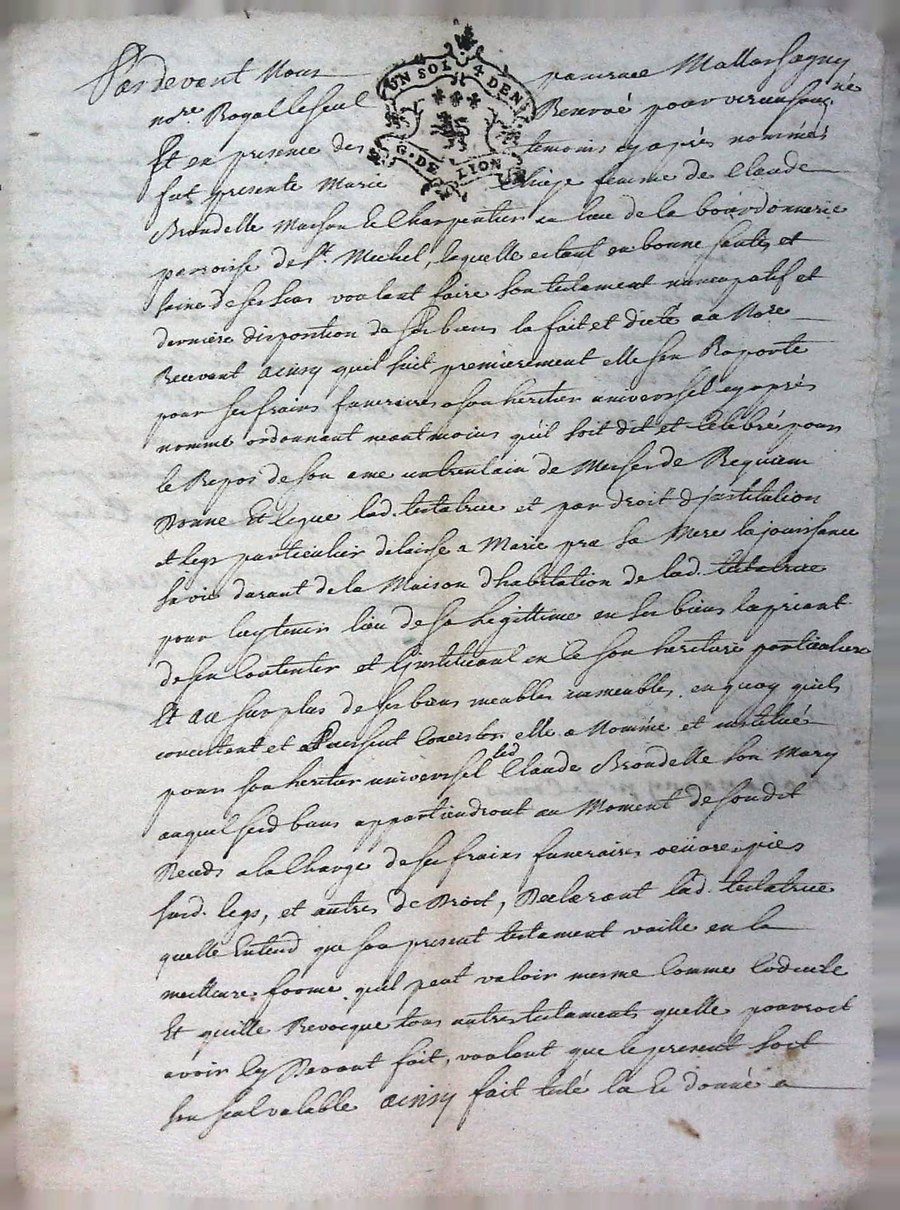 UN SOL 4 DEN
G. DE LION
Pardevant Nous
nore Royal le seul Reservé pour vernansous né
Et en presence des temoins cy après nommés
fut presente Marie femme de Claude
Brondelle Masson et Charpentier au lieu de la bourdonnerie
parroisse de St. Michel, laquelle estant en bonne santé et
saine de ses sens voulant faire son testament nuncupatif et
dernière disposition de ses biens la fait et dicté au Nore
Recevant ainsy quil suit premierement elle sen Raporte
pour ses fraims funeraires a son heritier universel cy après
nommé ordonnant neantmoins quil soit dit et celebré pour
le Repos de son ame un trentain de Messes de Requiem
Donne Et legue lad. testatrice et par droit d'institution
et legs particulier delaisse a Marie sa Mere la jouissance
sa vie durant de la Maison d'habitation de lad. testatrice
pour luy tenir lieu de sa legittime en ses biens la priant
de sen Contenter et linstituant en ce son heritiere particuliere
Et au surplus de ses biens meubles immeubles en quoy quils
concistent et elle a Nommé et institué
pour son heritier universel led. Claude Brondelle son Mary
auquel sesd. biens appartiendront au Moment de sondit
deceds a la Charge de ses fraims funeraires oeuvres pies
susd. legs, et autres de Droit, Declarant lad. testatrice
quelle Entend que son present testament vaille en la
meilleure forme quil peut valoir mesme Comme Codicile
Et quelle Revocque tous autres testaments quelle pourroit
avoir Cy Devant fait, voulant que le present soit
son seul valable ainsy fait leu et donné a